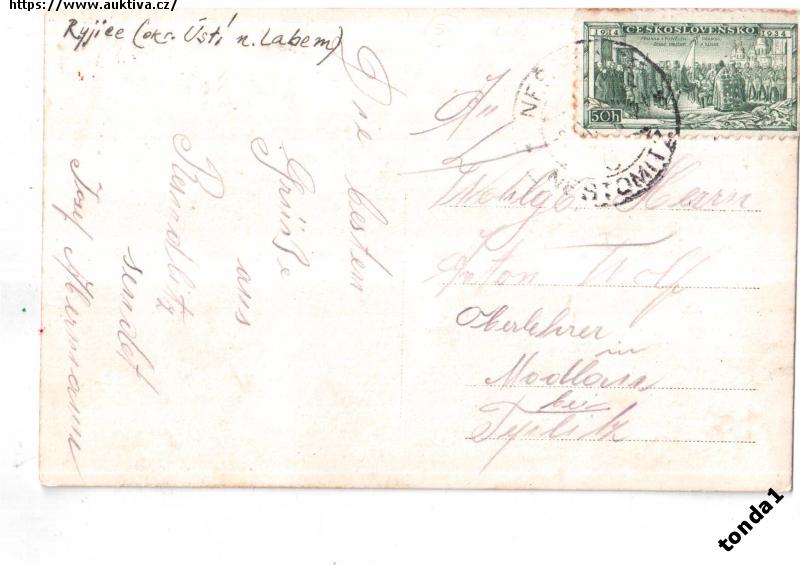 https://www.auktiva.cz/
Ryjice (okr. Ústí n. Labem)
Die besten
Grüße
aus
Reindlitz
sendet
Josef Hermann
ČESKOSLOVENSKO
1914 1934
50h
NESTOMITZ
An
Wohlg. Herrn
Anton Wolf
Oberlehrer
in
Modlan
bei
Teplitz
tonda1